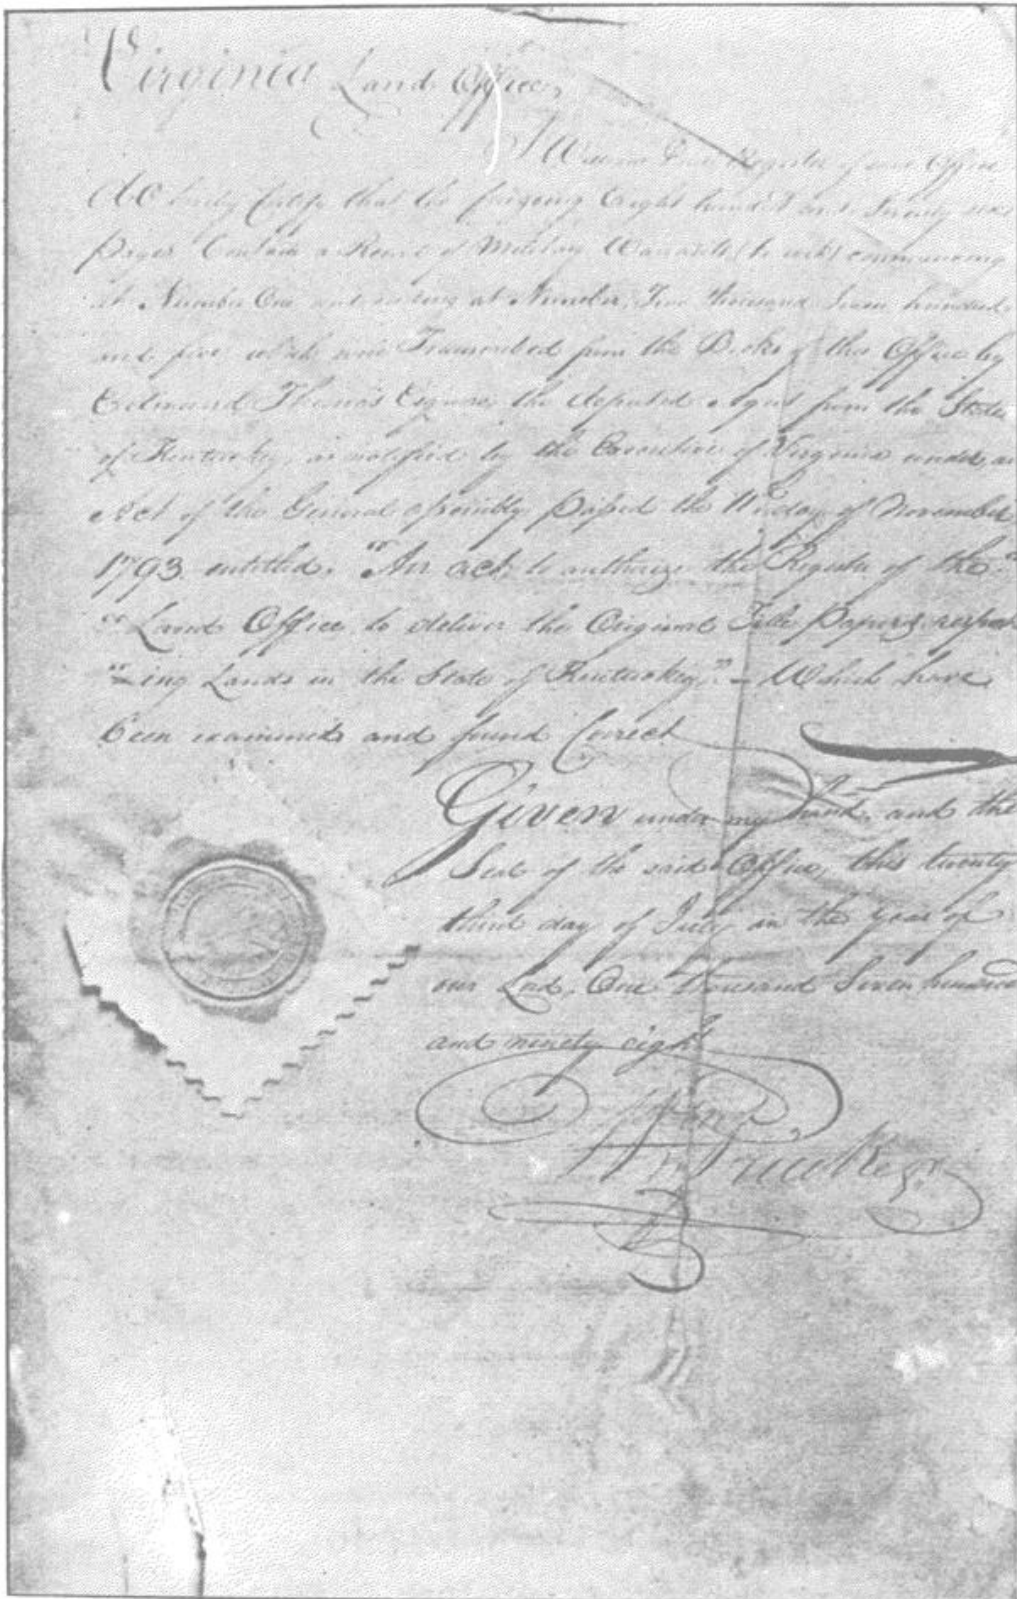 Virginia Land Office,
I William Price Register of said Office
do hereby Certify that the foregoing Eight hundred and Twenty
Pages Contain a Record of Military Warrants commencing
at Number One and ending at Number, Two thousand Seven hundred
and five, which were Transcribed from the Books of this Office by
Edmund Thomas Esquire, the deputed Agent from the State
of Kentucky, as notified by the Executive of Virginia under an
Act of the General Assembly passed the 11th day of November
1793. entitled. "An act, to authorize the Register of the"
"Land Office, to deliver the Original Title Papers respec
"ting Lands in the State of Kentuckey". – Which have
been examined and found Correct
Given under my hand, and the
Seal of the said Office, this twenty
third day of July in the year of
our Lord, One thousand Seven hundred
and ninety eight
Price Regr.